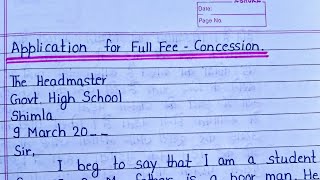 Date:
Page No.
Application for Full Fee - Concession.
The Headmaster
Govt. High School
Shimla
9 March 20_ _
Sir,
I beg to say that I am a student
father is a poor man. He